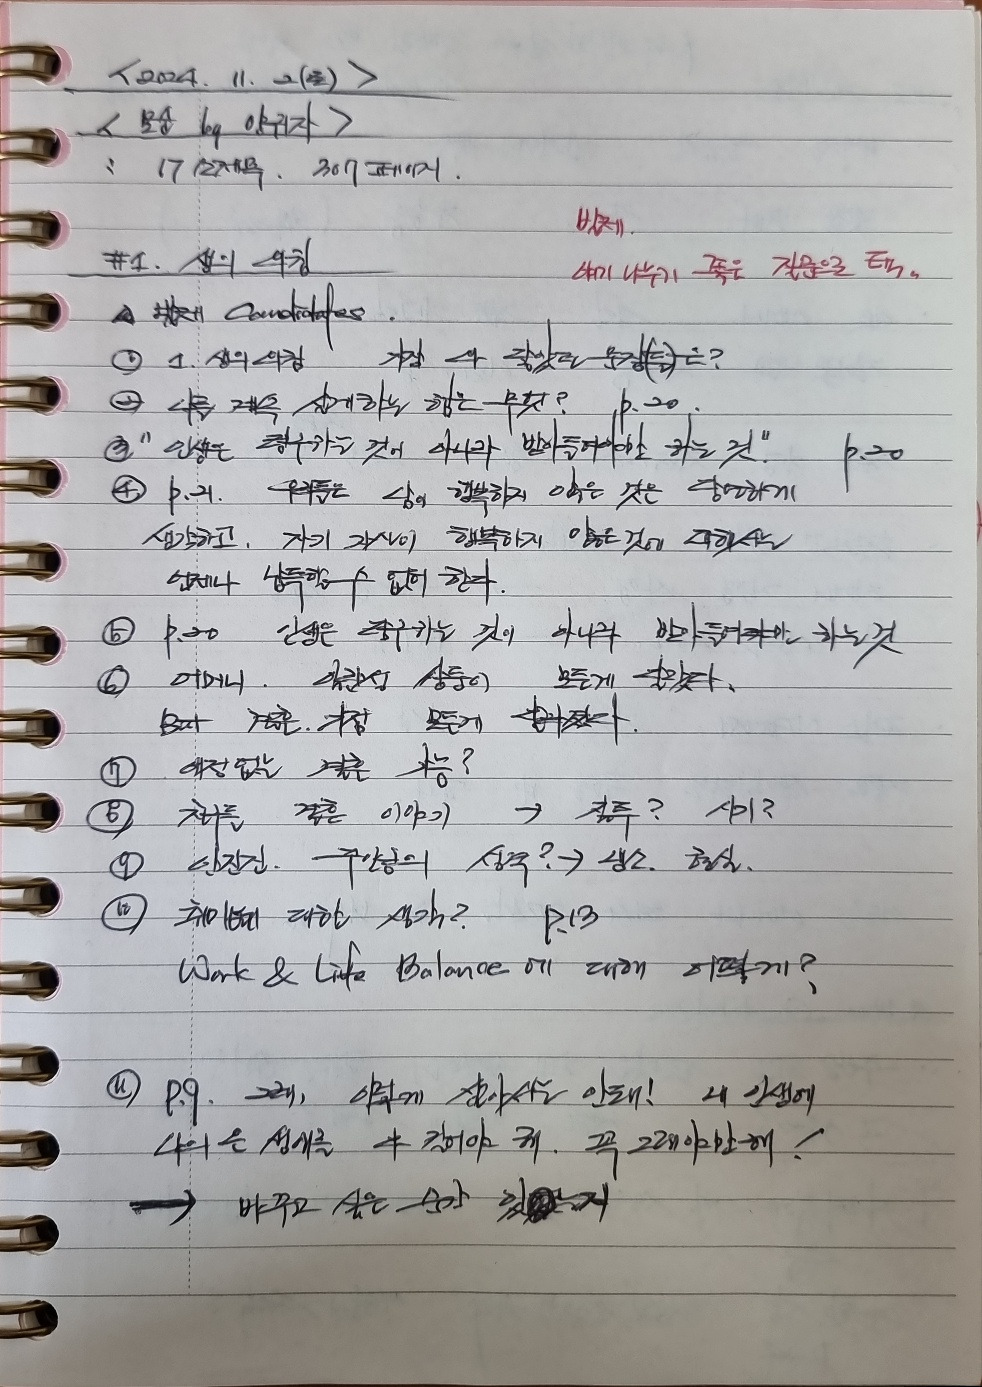 <2024. 11. 2(토)>
<모순 by 양귀자>
: 17 소제목. 307 페이지.
발제.
얘기 나누기 좋은 질문으로 택.
#1. 생의 외침
△ 발제 Candidates.
① 1. 생의 외침 가장 와 닿았던 문장(들)은?
② 나를 계속 살게하는 힘은 무엇? p.20.
③ "인생은 탐구하는 것이 아니라 받아들여야만 하는 것" p.20
④ p.21. 우리들은 남이 행복하지 않은 것은 당연하게
생각하고. 자기 자신이 행복하지 않은것에 대해서는
언제나 납득할 수 없어 한다.
⑤ p.20 인생은 탐구하는 것이 아니라 받아들여야만 하는것
⑥ 어머니. 일란성 쌍둥이 모든게 닮았다.
But 결혼. 가정 모든게 달라졌다.
⑦ 애정없는 결혼 가능?
⑧ 친구들 결혼 이야기 → 질투? 시기?
⑨ 안진진. 주인공의 성격? → 냉소. 현실.
⑩ 취미에 대한 생각? p.13
Work & Life Balance에 대해 어떻게?
⑪ p.9. 그래, 이렇게 살아서는 안돼! 내 인생에
나의 온 생애를 다 걸어야 해. 꼭 그래야만 해!
→ 바꾸고 싶은 순간